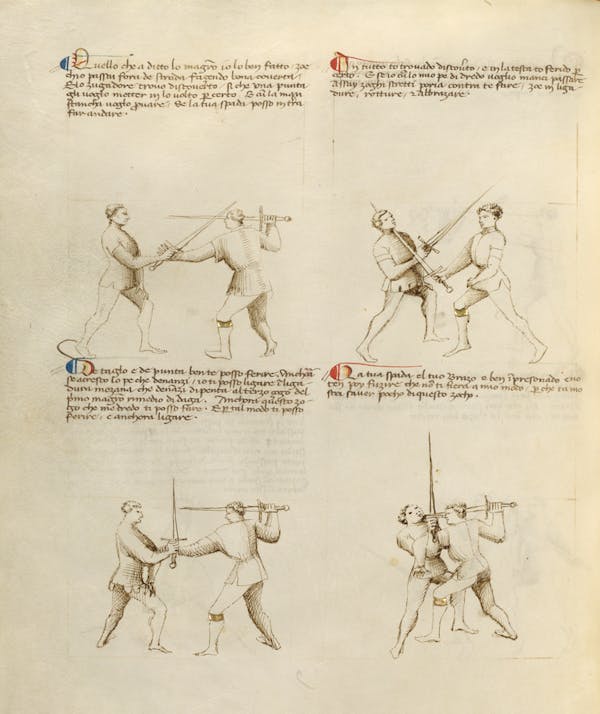 Quello che a ditto lo magro io lo ben fatto, zoe
ch'io passai fora de strada fazendo bona coverta.
E lo zugadore trovo discoverto. Si che una punta
gli voglio metter in lo volto per certo. E cum la man
stancha voglio provare, se la tua spada posso in tera
far andare.
In tutto t'o trovado discoverto, e in la testa t'o ferido per
certo. E se io cum lo mio pe di dredo voglio inanci passare
Assay zoghi stretti poria contra te fare, zoe in liga
dure, rotture, e abbrazare.
De taglio e de punta ben te posso ferire. Anchora
se acresco lo pe ch'e denanzi, io ti posso ligare in liga
dura mezana, che denanzi dipenta al terzo zogo del
primo magro rimedio di daga. Anchora questo zo
go che m'e dredo ti posso fare. E per tal modo ti posso
ferire, e anchora ligare.
La tua spada e'l tuo brazo e ben inpresonado e no
ten poy fuzire che non ti fiera a mio modo, perche tu mo
stri saver pocho di questo zogho.